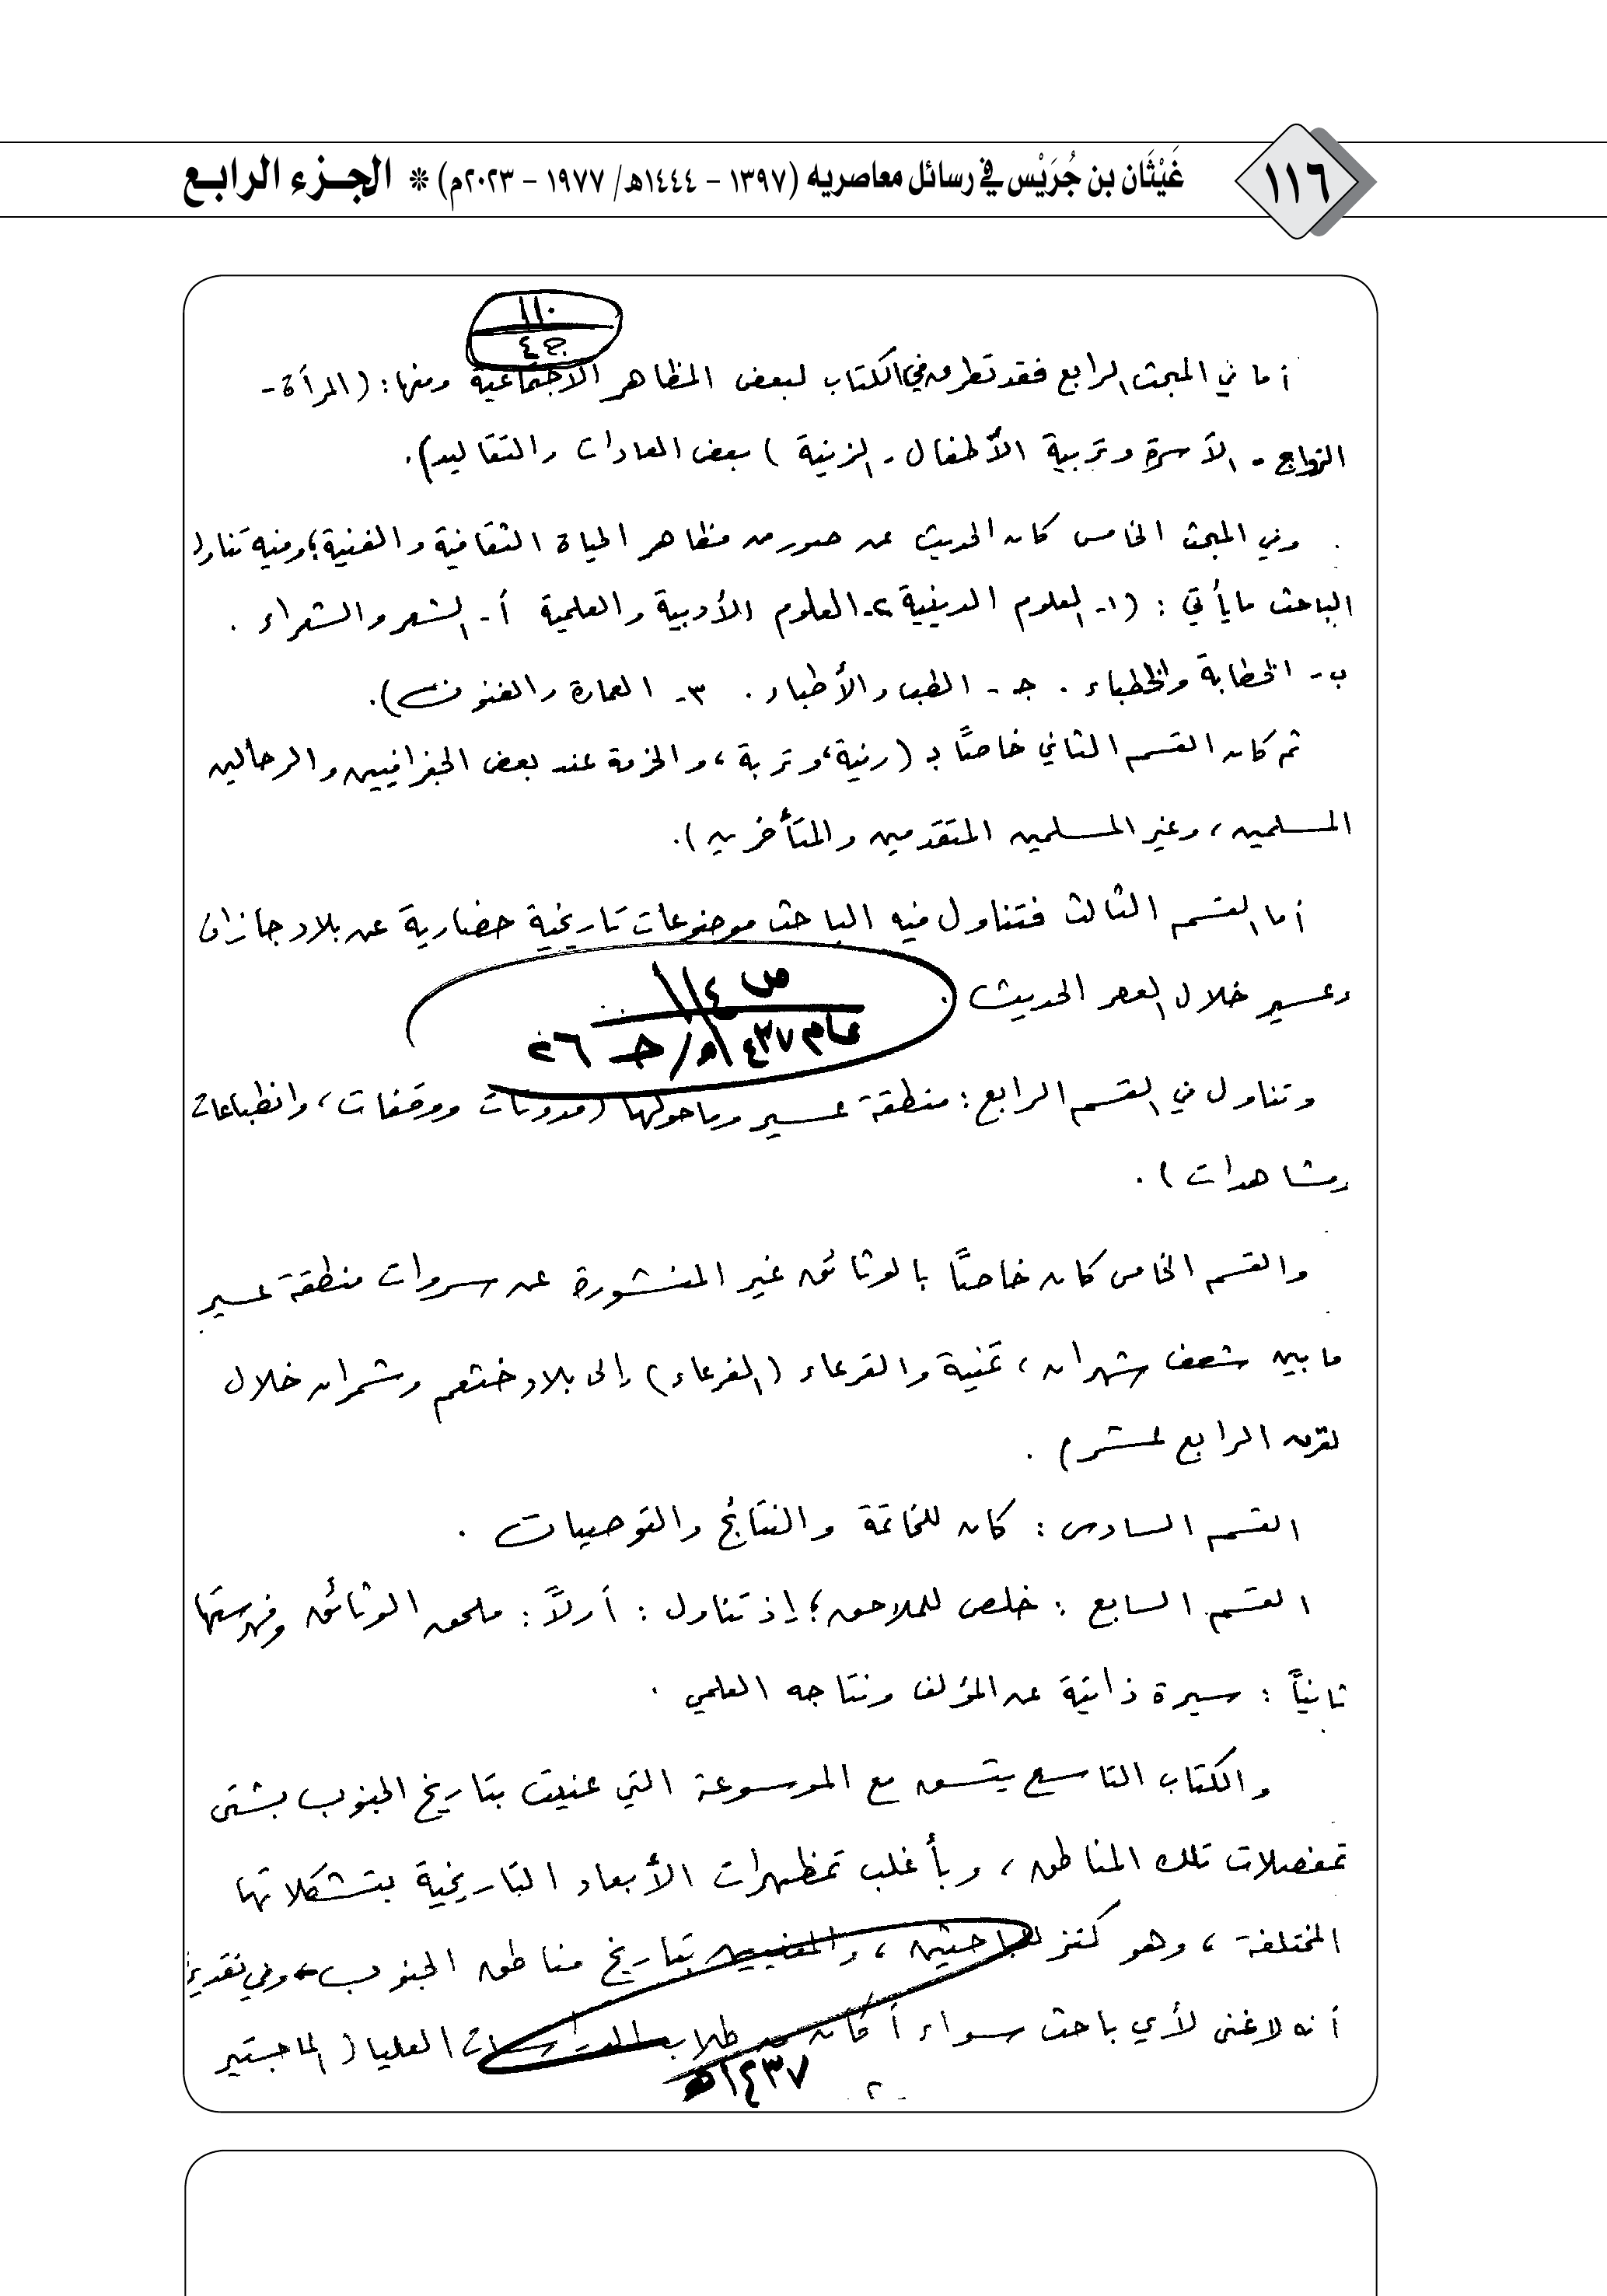 ١١٦
غَيْثَان بن جُرَيْس في رسائل معاصريه (١٣٩٧ - ١٤٤٤هـ/ ١٩٧٧ - ٢٠٢٣م) * الجزء الرابع
١١٠
ج ٤
أما في المبحث الرابع فقد تطرق في الكتاب لبعض المظاهر الاجتماعية ومنها: (المرأة -
الزواج - الأسرة وتربية الأطفال - الزينة ) بعض العادات والتقاليد).
وفي المبحث الخامس كان الحديث عن صور من مظاهر الحياة الثقافية والفنية؛ وفيه تناول
الباحث ما يأتي : (١- العلوم الدينية ٢- العلوم الأدبية والعلمية أ- الشعر والشعراء .
ب- الخطابة والخطباء . جـ - الطب والأطباء . ٣- العمارة والفنون).
ثم كان القسم الثاني خاصًا بـ (رنية، وتربة، والخرمة عند بعض الجغرافيين والرحالين
المسلمين، وغير المسلمين المتقدمين والمتأخرين).
أما القسم الثالث فتناول فيه الباحث موضوعات تاريخية حضارية عن بلاد جازان
وعسير خلال العصر الحديث .
ص ١١٤
عام ١٤٣٧هـ/ جـ ٢٦
وتناول في القسم الرابع : منطقة عسير وما حولها (مدونات ووقفات، وانطباعات
ومشاهدات ) .
والقسم الخامس كان خاصًا بالوثائق غير المنشورة عن سروات منطقة عسير
ما بين شعف شهران ، تمنية والقرعاء (الفرعاء) إلى بلاد خثعم وشمران خلال
لقرن الرابع عشر) .
القسم السادس : كان للخاتمة والنتائج والتوصيات .
القسم السابع : خلص للملاحق؛ إذ تناول : أولاً : ملحق الوثائق وفهرستها
ثانياً : سيرة ذاتية عن المؤلف ونتاجه العلمي .
والكتاب التاسع يتسق مع الموسوعة التي عنيت بتاريخ الجنوب بشتى
تمفصلات تلك المناطق ، وبأغلب تمظهرات الأبعاد التاريخية بتشكلاتها
المختلفة ، وهو كنز للباحثين ، والمعنيين بتاريخ مناطق الجنوب، وفي تقديري
أنه لا غنى لأي باحث سواء أكان من طلاب الدراسات العليا (الماجستير
١٤٣٧هـ
- ٢ -